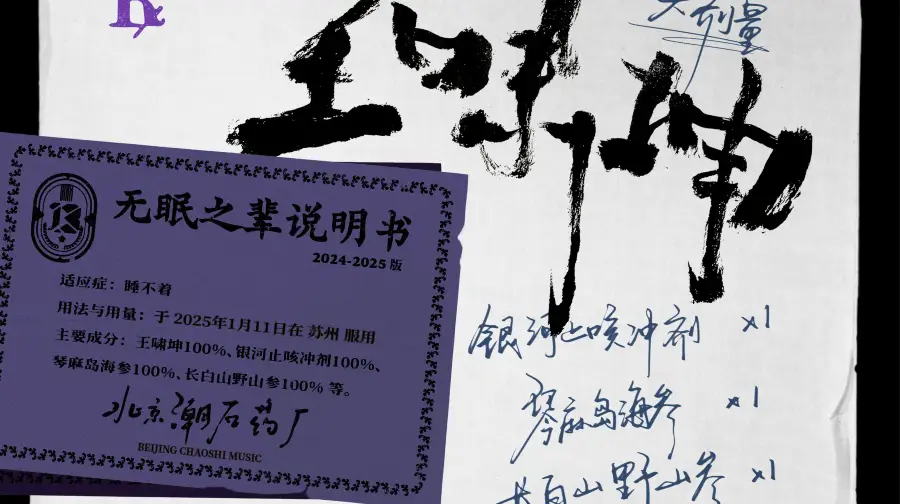 R
大剂量
王啸坤
无眠之辈说明书
2024-2025 版
适应症：睡不着
用法与用量：于 2025年1月11日在 苏州 服用
主要成分：王啸坤100%、银河止咳冲剂100%、
琴麻岛海参100%、长白山野山参100% 等。
北京潮石药厂
BEIJING CHAOSHI MUSIC
银河止咳冲剂 x1
琴麻岛海参 x1
长白山野山参 x1